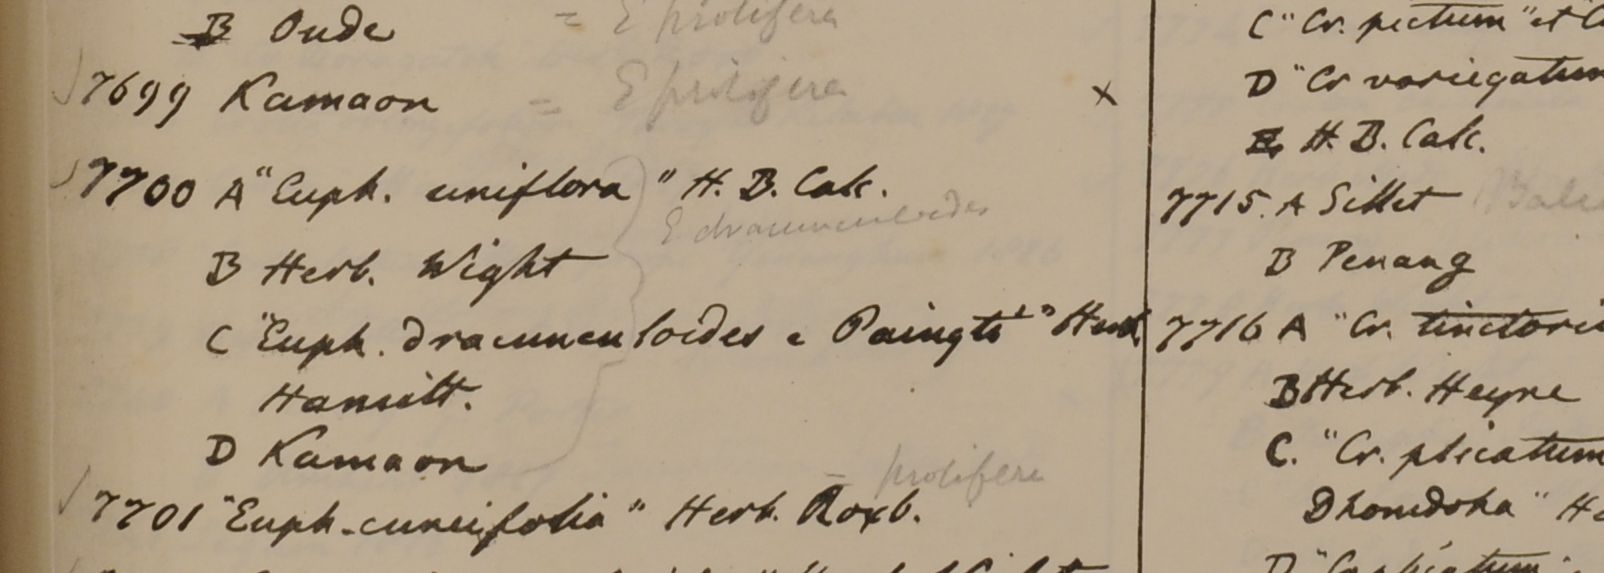 B Oude = E prolifera
7699 Kamaon = E prolifera ×
7700 A "Euph. uniflora" H. B. Calc.
E dracunculoides
B Herb. Wight
C "Euph. dracunculoides e Paingti" Herb.
Hamilt.
D Kamaon
= prolifera
7701 "Euph. cuneifolia" Herb. Roxb.
C "Cr. pictum" et "C
D "Cr variegatum
E H. B. Calc.
7715. A Sillet
B Penang
7716 A "Cr. tinctori
B Herb. Heyne
C. "Cr. plicatum
Dhomdoha" H
D "Cr plicatum